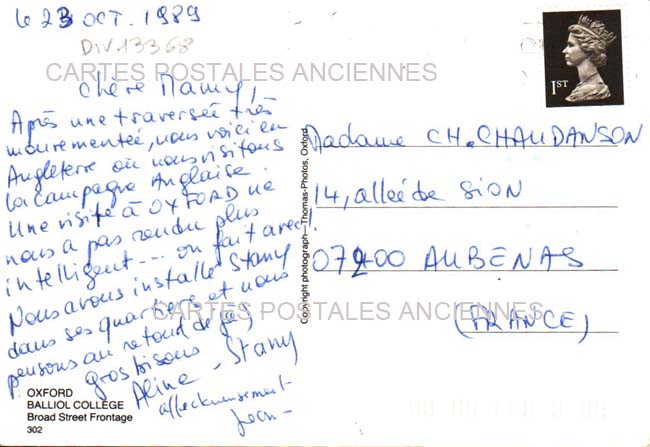 le 23 OCT. 1989
DIV.13368
CARTES POSTALES ANCIENNES
Chère Mamy,
Après une traversée très
mouvementée, nous voici en
Angleterre où nous visitons
la campagne Anglaise.
Une visite à OXFORD ne
nous a pas rendu plus
intelligent --- on fait avec!
Nous avons installé Stany
dans ses quartiers et nous
pensons au retour
gros bisous
Aline - Stany
affectueusement
Jean -
OXFORD
BALLIOL COLLEGE
Broad Street Frontage
302
Copyright photograph — Thomas-Photos, Oxford.
1ST
Madame CH. CHAUDANSON
14, allée de SION
07200 AUBENAS
CARTES POSTALES ANCIENNES
(FRANCE)